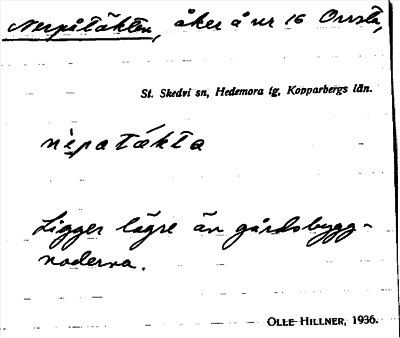 Nerpåtäkten, åker å nr 16 Orrsta,
St. Skedvi sn, Hedemora tg, Kopparbergs län.
nèpatäkta
Ligger lägre än gårdsbygg-
naderna.
OLLE HILLNER, 1936.